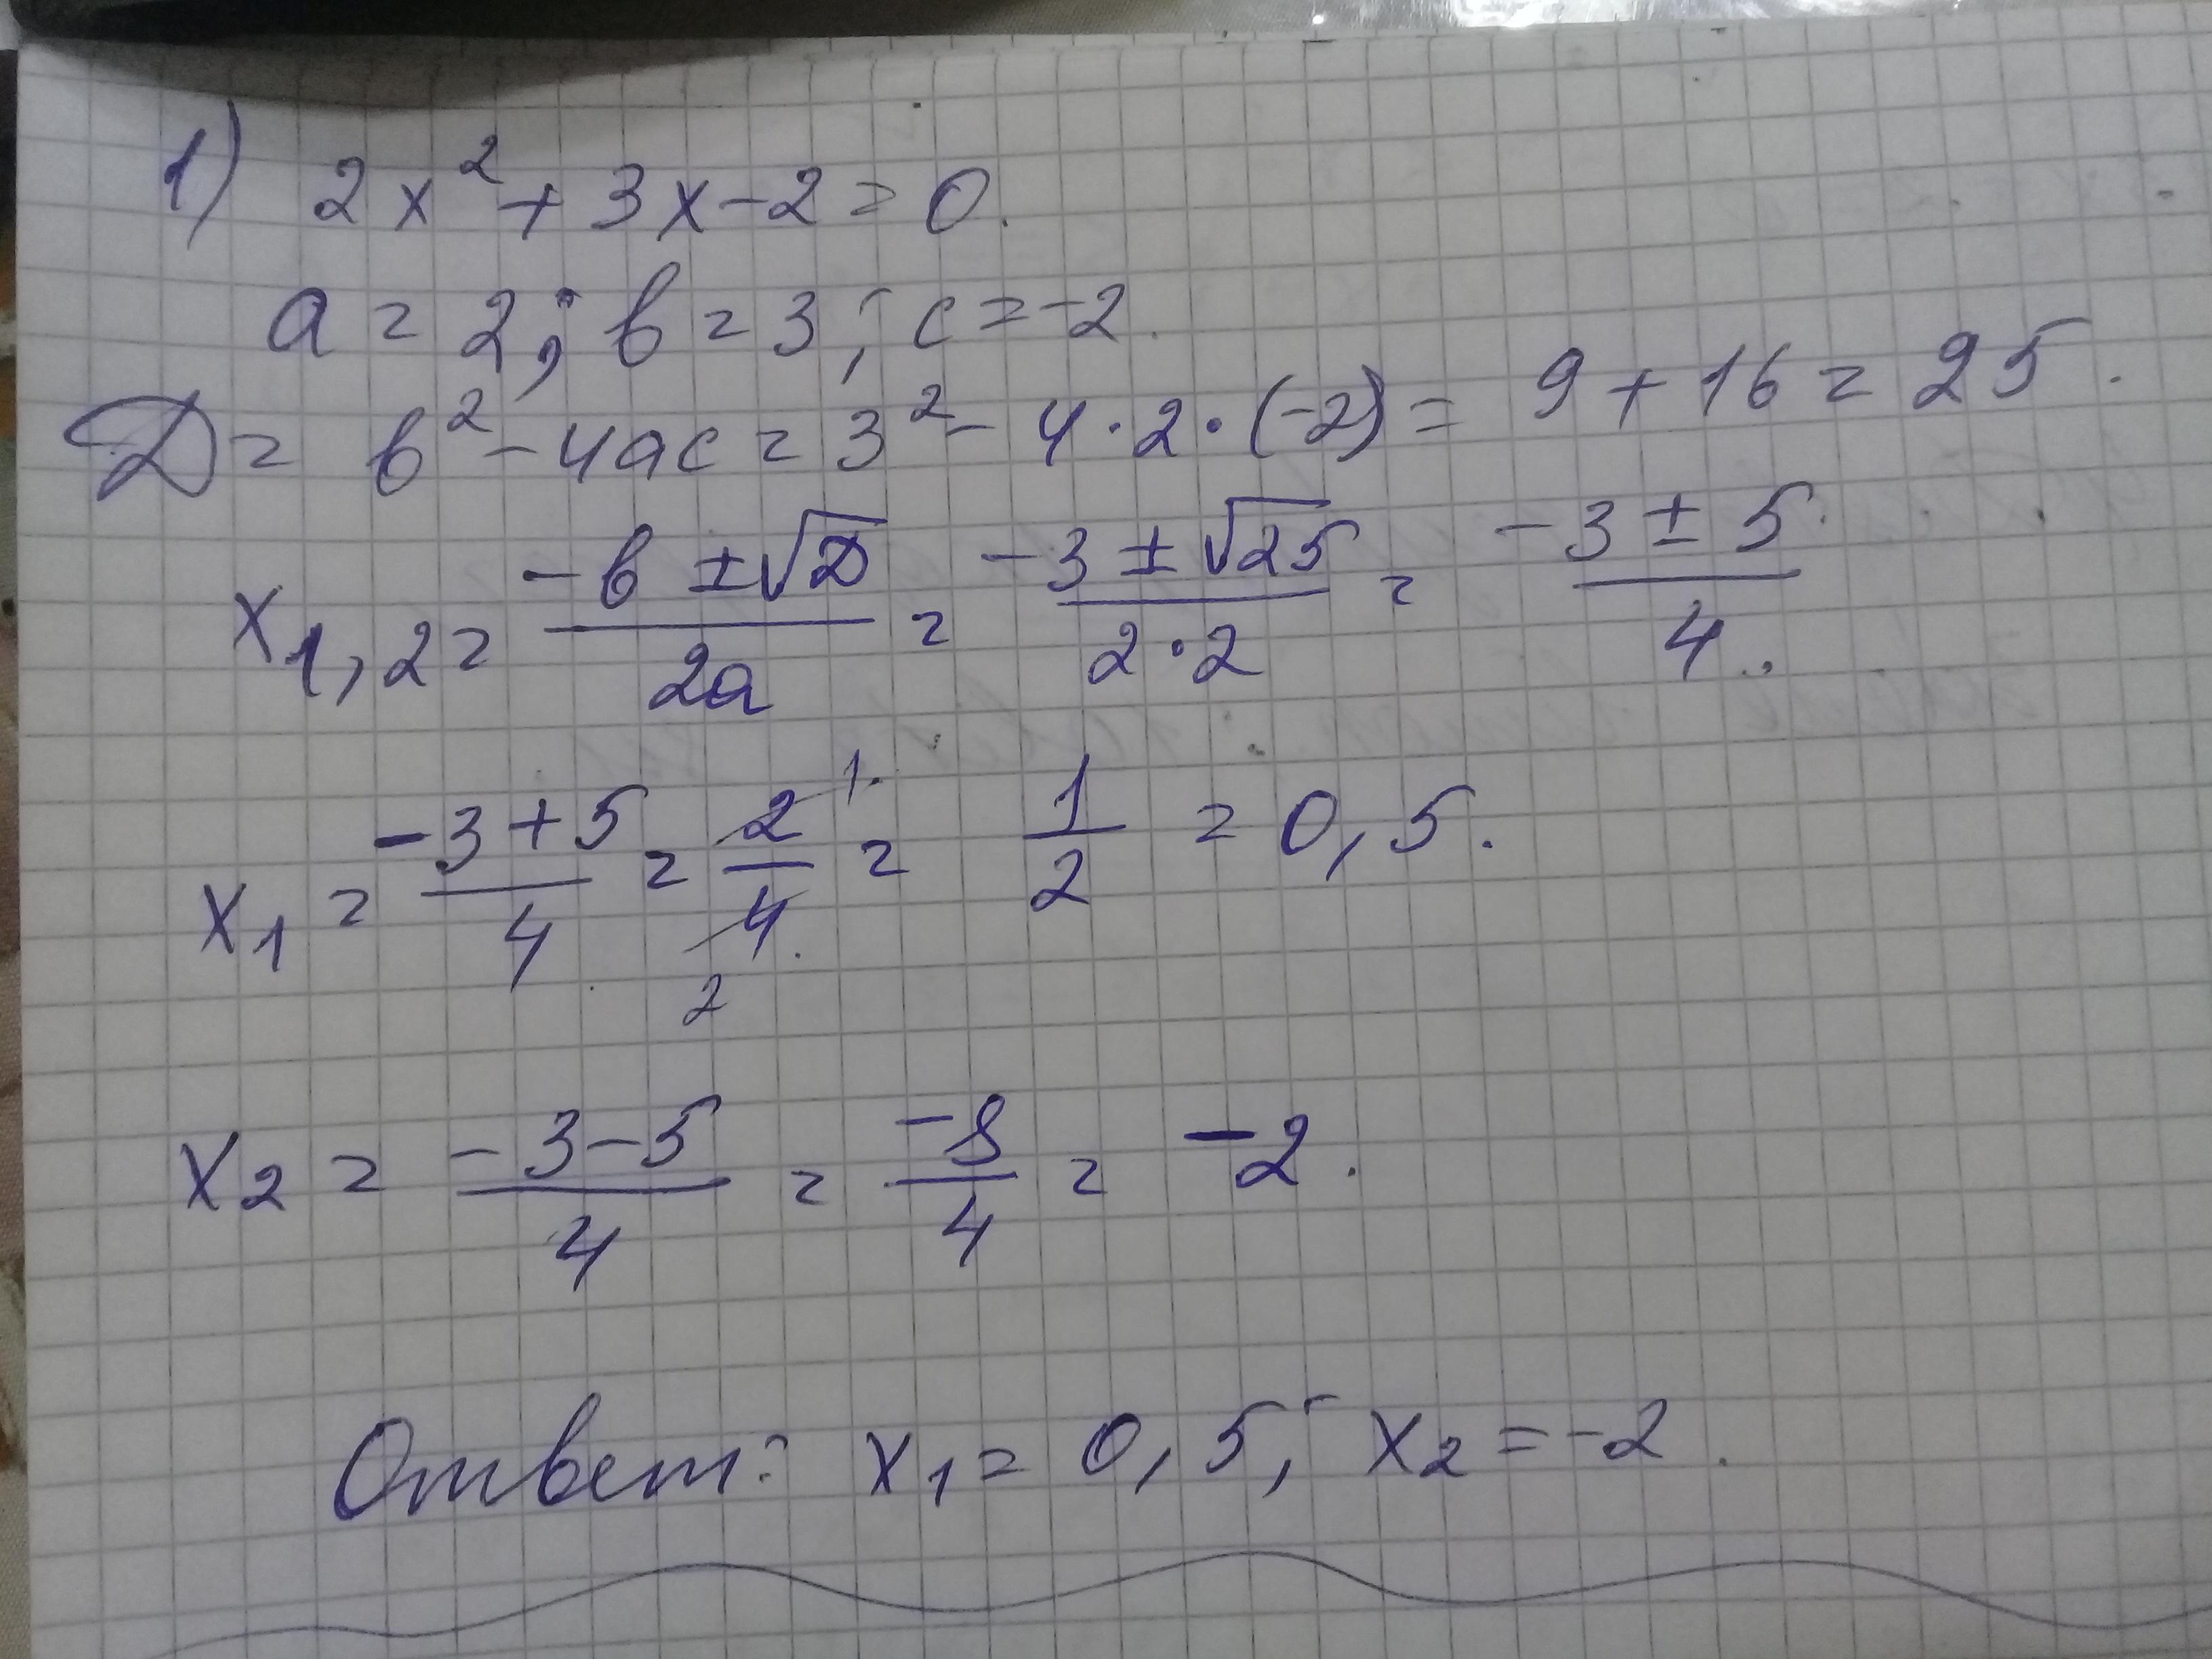 1) 2x² + 3x - 2 = 0.
a = 2; b = 3; c = -2.
D = b² - 4ac = 3² - 4 · 2 · (-2) = 9 + 16 = 25.
x1,2 = (-b ± √D)/(2a) = (-3 ± √25)/(2·2) = (-3 ± 5)/4.
x1 = (-3 + 5)/4 = 2/4 = 1/2 = 0,5.
x2 = (-3 - 5)/4 = -8/4 = -2.
Ответ: x1 = 0,5; x2 = -2.